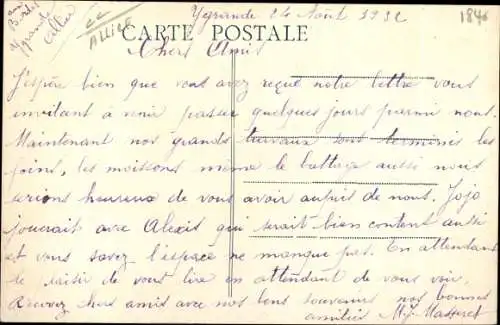 Ygrande 24 Août 1932
1840
Allier
CARTE POSTALE
Chers Amis
J'espère bien que vous avez reçue notre lettre vous
invitant à venir passer quelques jours parmi nous.
Maintenant nos grands travaux sont terminés les
foins, les moissons même le battage aussi nous
serions heureux de vous avoir auprès de nous. Jojo
jouerait avec Alexis qui serait bien content aussi
et vous savez l'espace ne manque pas. En attendant
le plaisir de vous lire en attendant de vous voir,
Recevez chers amis avec nos bons souvenirs nos bonnes
amitiés Masseret